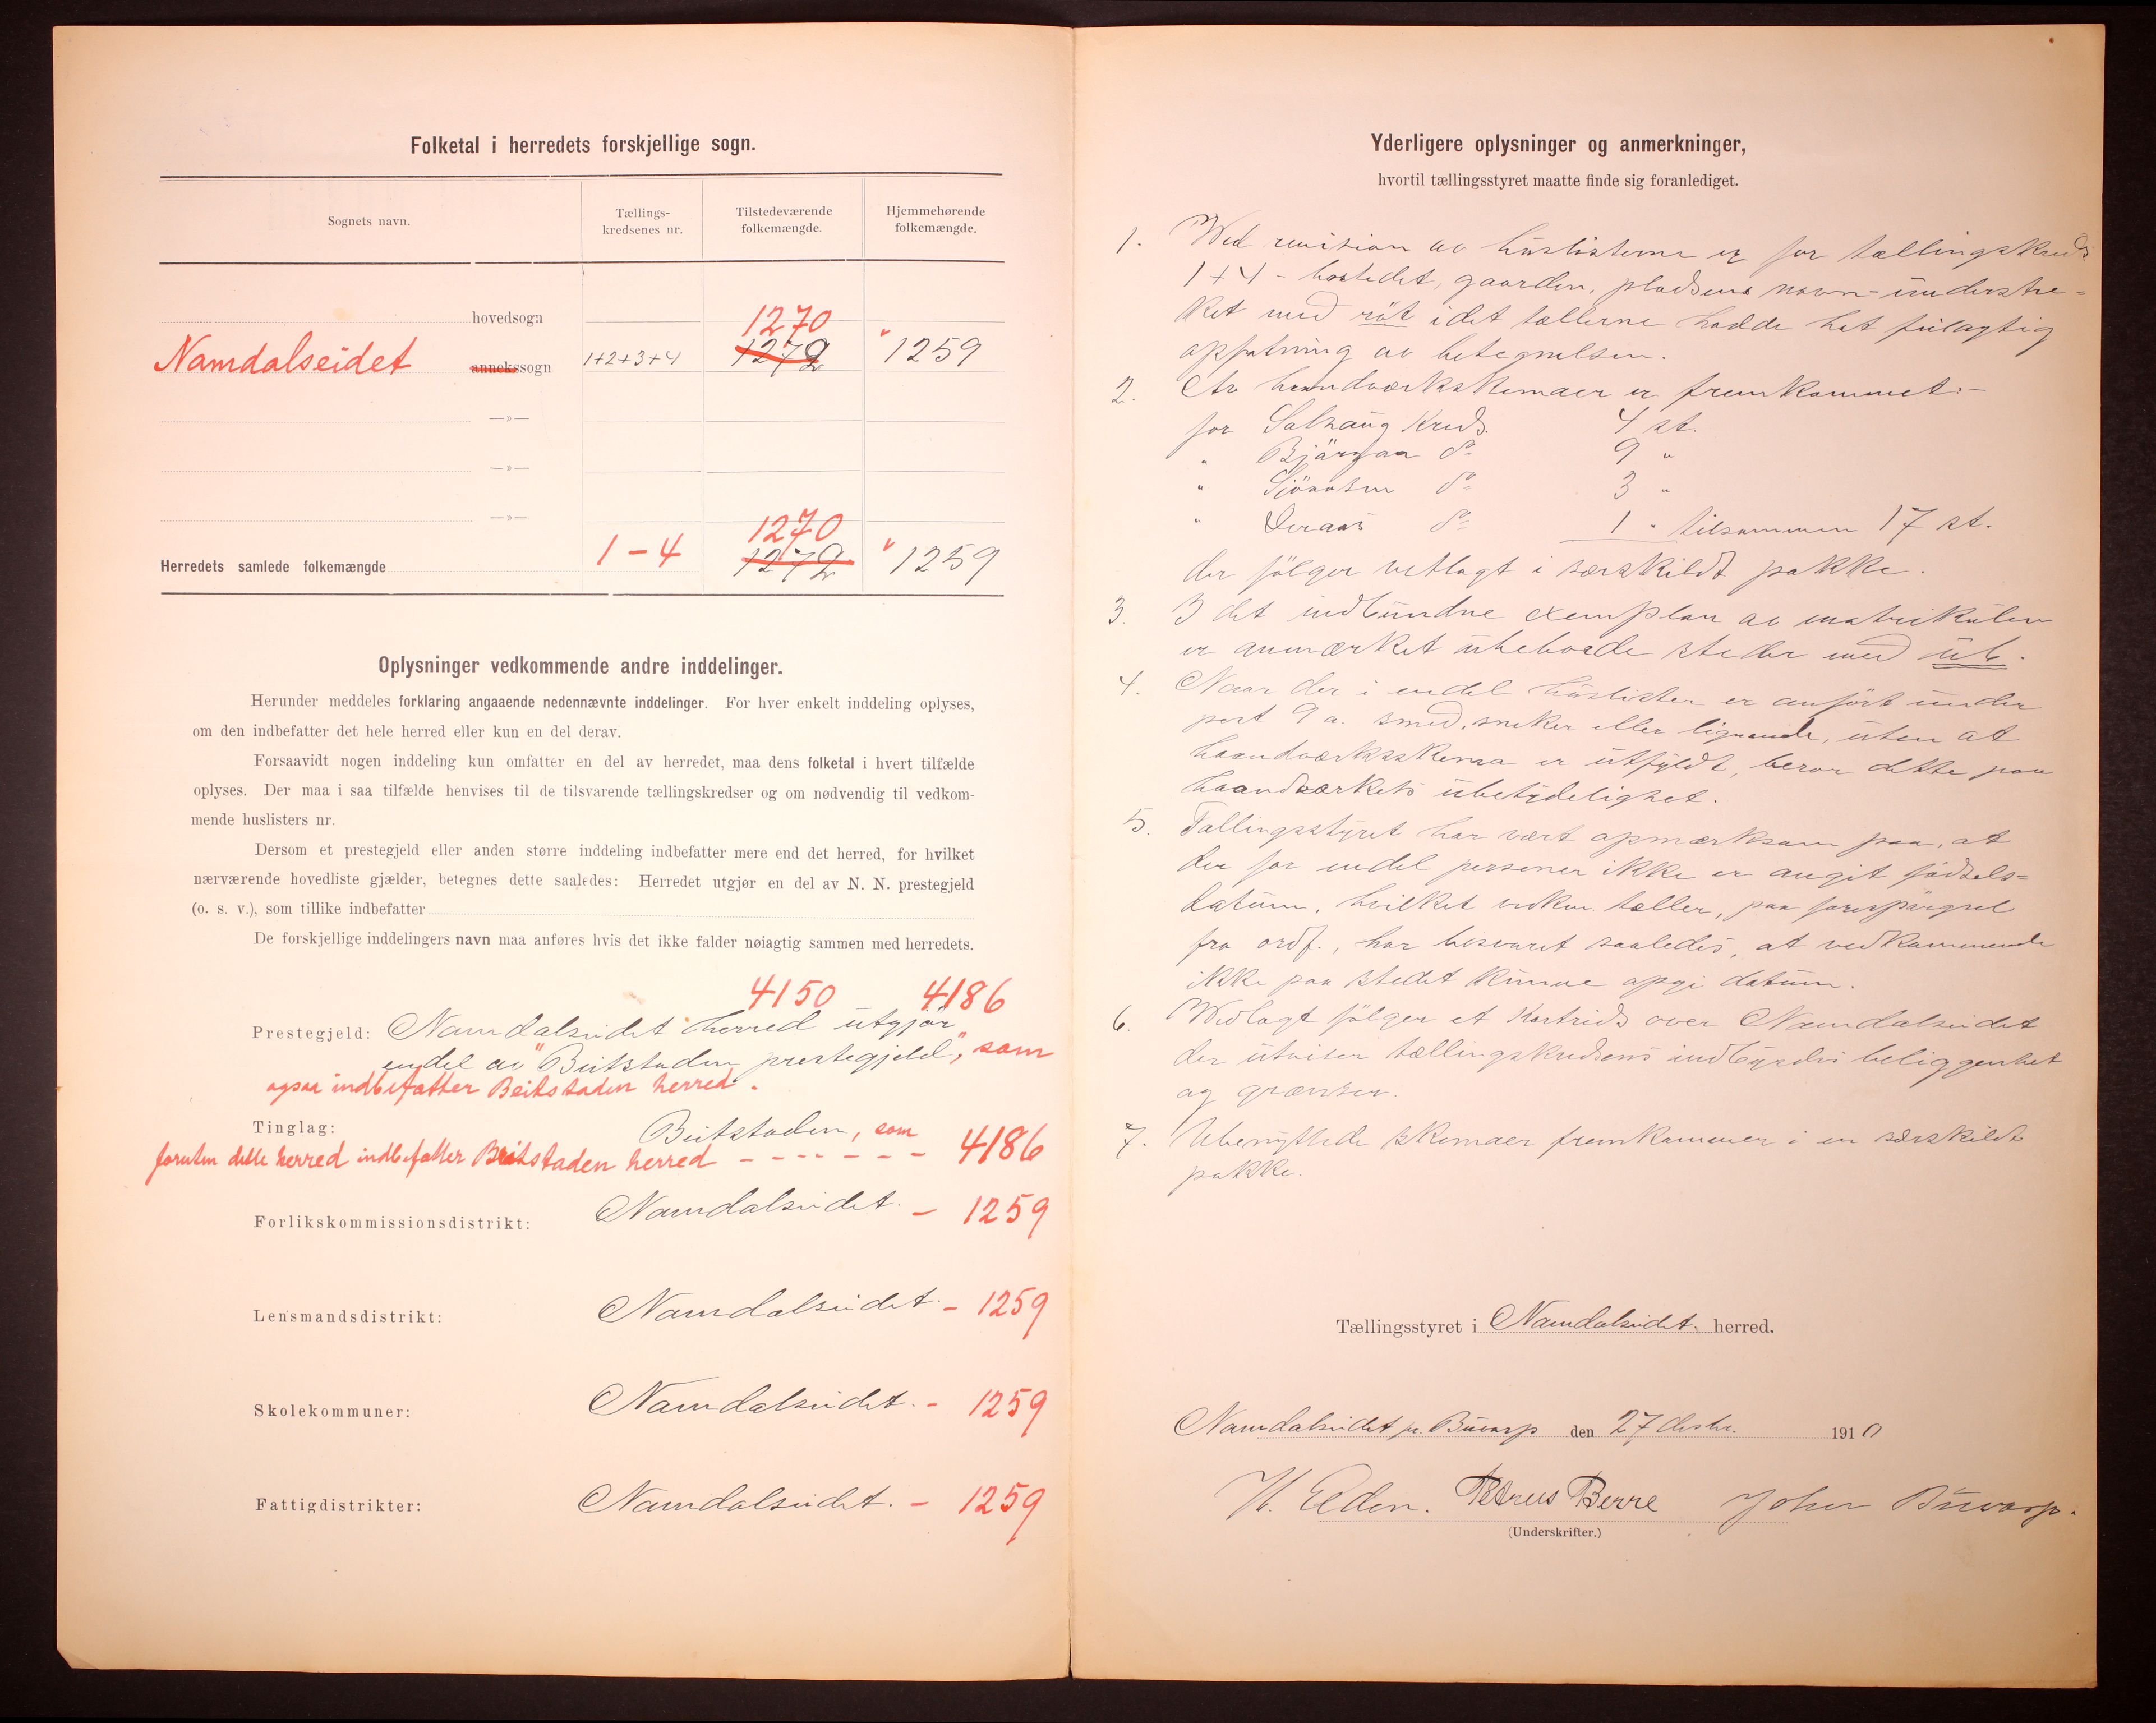 Folketal i herredets forskjellige sogn.
Sognets navn.
Tællings-
kredsenes nr.
Tilstedeværende
folkemængde.
Hjemmehørende
folkemængde.
hovedsogn
1270
Namdalseidet annekssogn 1+2+3+4 1272 1259
—»—
—»—
—»—
1270
Herredets samlede folkemængde 1-4 1272 1259
Oplysninger vedkommende andre inddelinger.
Herunder meddeles forklaring angaaende nedennævnte inddelinger. For hver enkelt inddeling oplyses,
om den indbefatter det hele herred eller kun en del derav.
Forsaavidt nogen inddeling kun omfatter en del av herredet, maa dens folketal i hvert tilfælde
oplyses. Der maa i saa tilfælde henvises til de tilsvarende tællingskredser og om nødvendig til vedkom-
mende huslisters nr.
Dersom et prestegjeld eller anden større inddeling indbefatter mere end det herred, for hvilket
nærværende hovedliste gjælder, betegnes dette saaledes: Herredet utgjør en del av N. N. prestegjeld
(o. s. v.), som tillike indbefatter
De forskjellige inddelingers navn maa anføres hvis det ikke falder nøiagtig sammen med herredets.
4150 4186
Prestegjeld: Namdalseidet herred utgjör
endel av "Beitstaden prestegjeld", som
ogsaa indbefatter Beitstaden herred.
Tinglag: Beitstaden, som
foruten dette herred indbefatter Beitstaden herred - - - - - - - 4186
Forlikskommissionsdistrikt: Namdalseidet. - 1259
Lensmandsdistrikt: Namdalseidet. - 1259
Skolekommuner: Namdalseidet. - 1259
Fattigdistrikter: Namdalseidet. - 1259
Yderligere oplysninger og anmerkninger,
hvortil tællingsstyret maatte finde sig foranlediget.
1. Ved revision av huslisterne er for tællingskreds
1+4 - bostedet, gaarden, pladsens navn - understre-
ket med röt idet tællerne hadde hat feilagtig
opfatning av betegnelsen.
2. Av haandværksskemaer er fremkommet:-
for Kreds. 4 st.
" Bjørgaa do 9 "
" Sjöaasen do 3 "
" do 1 " tilsammen 17 st.
der fölger vedlagt i særskildt pakke.
3. I det indbundne exemplar av matrikulen
er anmærket ubeboede steder med ub.
4. Naar der i endel huslister er anfört under
post 9 a. smed, sneker eller lignende, uten at
haandværksskema er utfyldt, beror dette paa
haandværkets ubetydelighet.
5. Tællingsstyret har vært opmærksom paa, at
der for endel personer ikke er angit födsels=
datum, hvilket vedkom. tæller, paa forespörgsel
fra ordf., har besvaret saaledes, at vedkommende
ikke paa stedet kunne opgi datum.
6. Vedlagt fölger et Kartrids over Namdalseidet
der utviser tællingskredsens indbyrdes beliggenhet
og grænser.
7. Ubenyttede skemaer fremkommer i en særskildt
pakke.
Tællingsstyret i Namdalseidet herred.
Namdalseidet pr. Buvarp den 27 desbr. 1910
H. Elden. Petrus Berre Johan Buvarp.
(Underskrifter.)